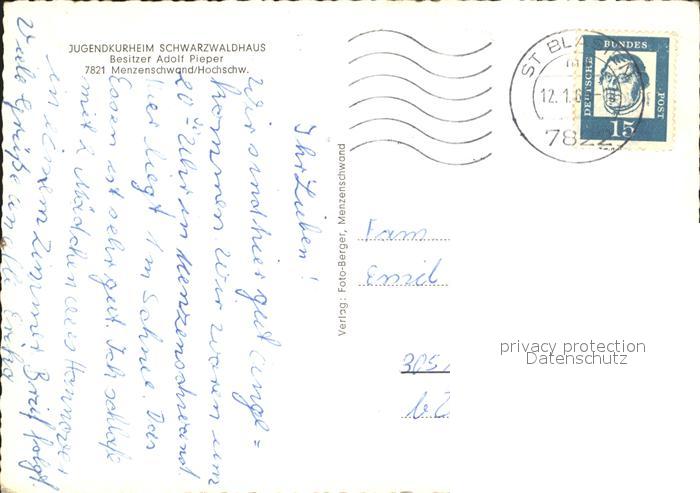 JUGENDKURHEIM SCHWARZWALDHAUS
Besitzer Adolf Pieper
7821 Menzenschwand/Hochschw.
Ihr Lieben!
Wir sind hier gut ange=
kommen. Wir waren um
20 Uhr in Menzenschwand.
hier liegt 1 m Schnee. Das
Essen ist sehr gut. Ich schlafe
mit 2 Mädchen aus Hannover
in einem Zimmer. Brief folgt.
Viele Grüße an alle
Verlag: Foto-Berger, Menzenschwand
ST BLAS
12.1.6
7822
DEUTSCHE
BUNDES
POST
15
Fam
Emil
305
bZ
privacy protection
Datenschutz